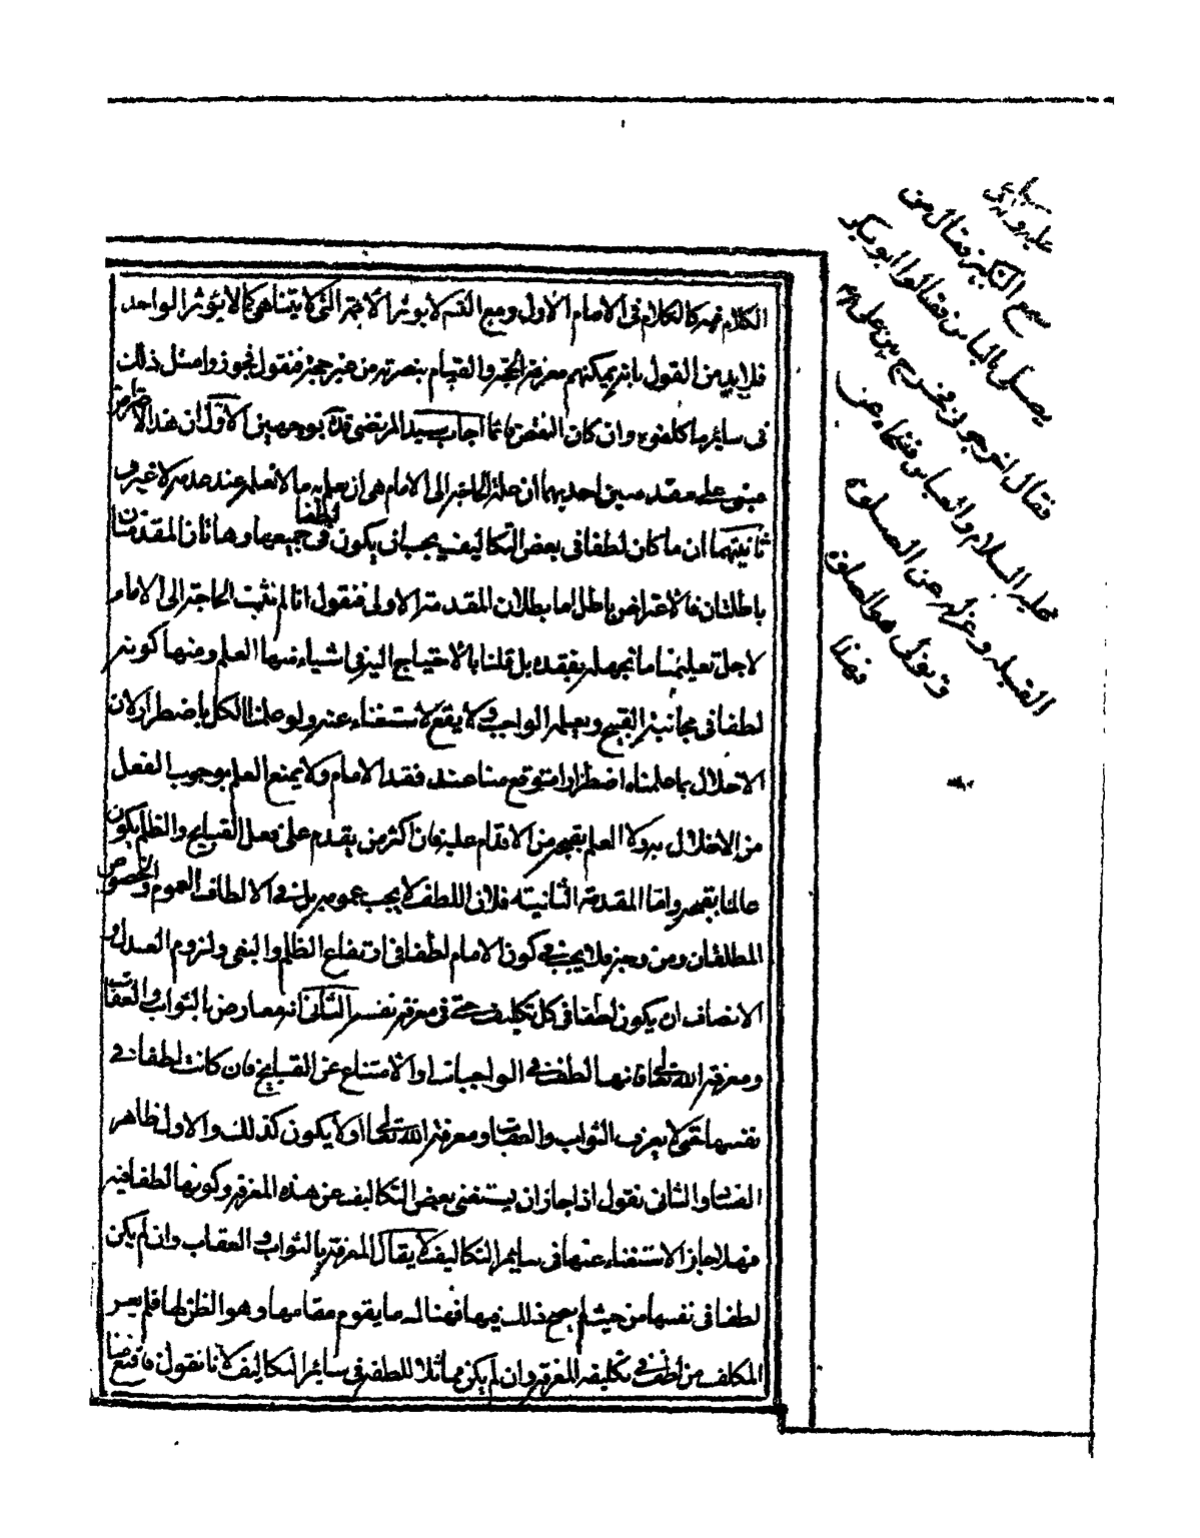 الكلام فيه كالكلام في الامام الاول ومع القـ لا يوثر الايمة التي لا يتناهى كما لا يؤثر الواحد
فلابد من القول بانه يمكنهم معرفة الحجة والقيام بنصرته من غير حجة فنقول فجوزوا مثل ذلك
في سائر ما كلفوه وان كان النقض قائما اجاب سيد المرتضى قده بوجهين الاول ان هذا الاعتراض
مبني على مقدمتين احديهما ان علة الحاجة الى الامام هى ان نعلم به ما لا نعلمه عند عدمه لا غير و
ثانيتهما ان ما كان لطفا في بعض التكاليف يجب ان يكون لطفا في جميعها وهاتان المقدمتان
باطلتان فالاعتراض باطل اما بطلان المقدمة الاولى فنقول انا لم نثبت الحاجة الى الامام
لاجل تعليمنا ما نجهله بفقده بل قلنا بالاحتياج اليه في اشياء منها العلم ومنها كونه
لطفا في مجانبة القبيح وفعل الواجب ولا يقع الاستغناء عنه ولو علمنا الكل باضطرار لان
الاخلال بما علمناه اضطرارا متوقع منا عند فقد الامام ولا يمنع العلم بوجوب الفعل
من الاخلال به ولا العلم بقبحه من الاقدام عليه فان اكثر من يقدم على فعل القبايح والظلم يكون
عالما بقبحه واما المقدمة الثانيته فلان اللطف لا يجب عمومه بل في الالطاف العموم والخصوص
المطلقان ومن وجه فلا يجب في كون الامام لطفا في ارتفاع الظلم والبغي ولزوم العدل و
الانصاف ان يكون لطفا في كل تكليف حتى في معرفة نفسه الثاني انه معارض بالثواب والعقاب
ومعرفة الله تعالى فانها لطف في الواجبات او الامتناع عن القبايح فان كانت لطفا في
نفسها فمتى لا يعرف الثواب والعقاب ومعرفة الله تعالى اولا يكون كذلك والاول ظاهر
الفساد والثاني نقول اذا جاز ان يستغني بعض التكاليف عن هذه المعرفة وكونها لطفا فيه
فهلا جاز الاستغناء عنها في سائر التكاليف لا يقال المعرفة بالثواب والعقاب وان لم يكن
لطفا في نفسها من حيث لم يصح ذلك فيها فهناك ما يقوم مقامها وهو الظن لها فلم يعر
المكلف من لطف في تكليفه المعرفة وان لم يكن مماثلا للطفه في سائر التكاليف لانا نقول فاقنع منا
عليه
سمع التكبير فقال من
يصلي بالناس فقالوا ابو بكر
فقال اخرجوني فخرج بين على
عليه السلام والعباس فنحاه عن
القبلة وعزله عن الصلوة
وتولى هو الصلوة
فهذا